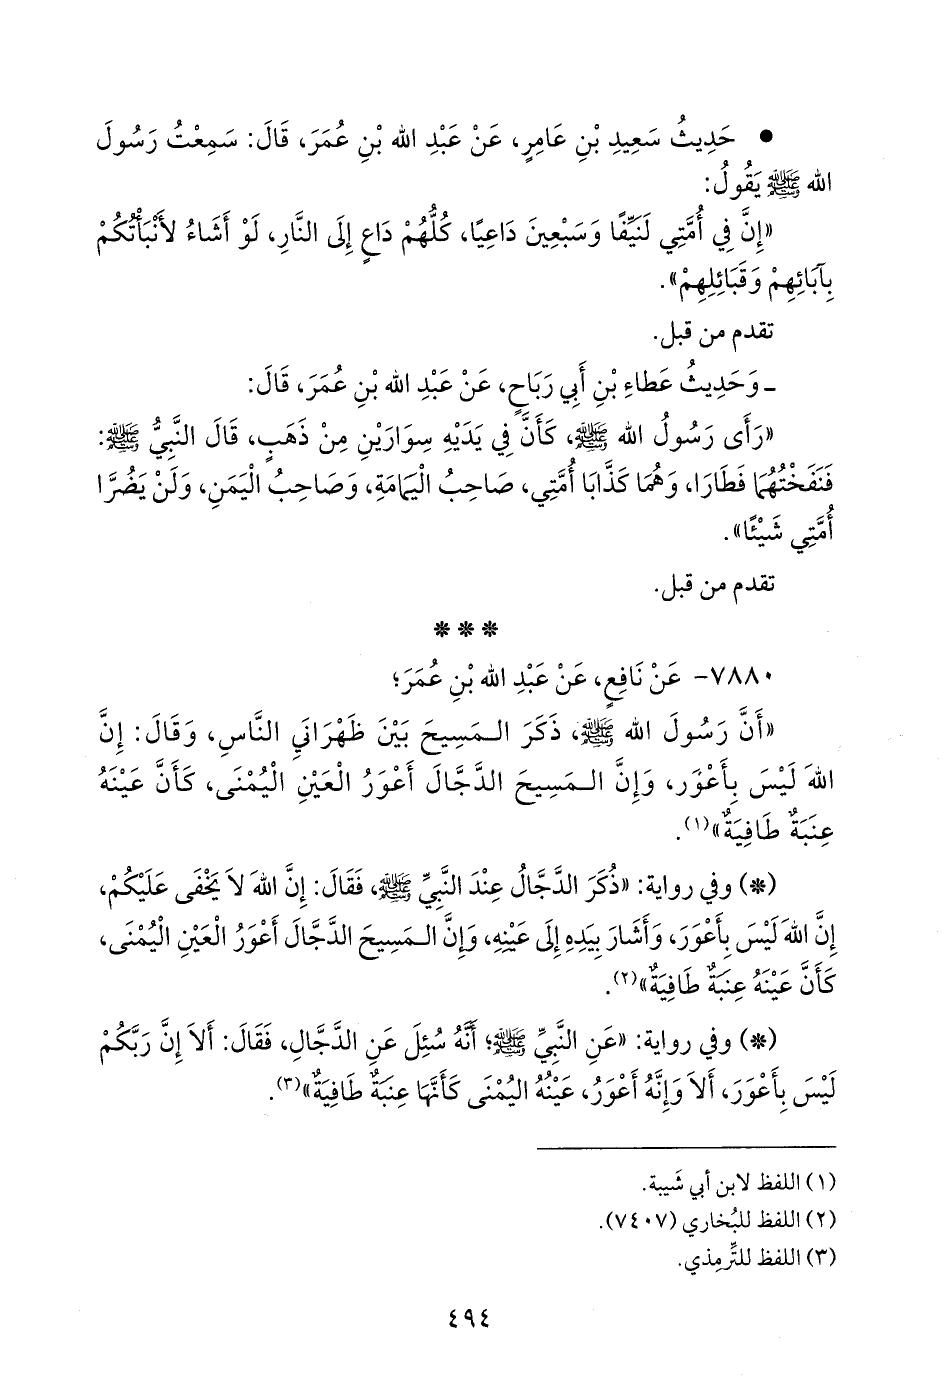 ● حَدِيثُ سَعِيدِ بْنِ عَامِرٍ، عَنْ عَبْدِ الله بْنِ عُمَرَ، قَالَ: سَمِعْتُ رَسُولَ
الله ﷺ يَقُولُ:
«إِنَّ فِي أُمَّتِي لَنَيِّفًا وَسَبْعِينَ دَاعِيًا، كُلُّهُمْ دَاعٍ إِلَى النَّارِ، لَوْ أَشَاءُ لأَنْبَأْتُكُمْ
بِآبَائِهِمْ وَقَبَائِلِهِمْ».
تقدم من قبل.
ـ وَحَدِيثُ عَطَاءِ بْنِ أَبِي رَبَاحٍ، عَنْ عَبْدِ الله بْنِ عُمَرَ، قَالَ:
«رَأَى رَسُولُ الله ﷺ، كَأَنَّ فِي يَدَيْهِ سِوَارَيْنِ مِنْ ذَهَبٍ، قَالَ النَّبِيُّ ﷺ:
فَنَفَخْتُهُمَا فَطَارَا، وَهُمَا كَذَّابَا أُمَّتِي، صَاحِبُ الْيَمَامَةِ، وَصَاحِبُ الْيَمَنِ، وَلَنْ يَضُرَّا
أُمَّتِي شَيْئًا».
تقدم من قبل.
* * *
٧٨٨٠- عَنْ نَافِعٍ، عَنْ عَبْدِ الله بْنِ عُمَرَ؛
«أَنَّ رَسُولَ الله ﷺ، ذَكَرَ الـمَسِيحَ بَيْنَ ظَهْرَانَيِ النَّاسِ، وَقَالَ: إِنَّ
اللهَ لَيْسَ بِأَعْوَر، وَإِنَّ الـمَسِيحَ الدَّجَّالَ أَعْوَرُ الْعَيْنِ الْيُمْنَى، كَأَنَّ عَيْنَهُ
عِنَبَةٌ طَافِيَةٌ»(١).
(*) وفي رواية: «ذُكَرَ الدَّجَّالُ عِنْدَ النَّبِيِّ ﷺ، فَقَالَ: إِنَّ اللهَ لاَ يَخْفَى عَلَيْكُمْ،
إِنَّ اللهَ لَيْسَ بِأَعْوَرَ، وَأَشَارَ بِيَدِهِ إِلَى عَيْنِهِ، وَإِنَّ الـمَسِيحَ الدَّجَّالَ أَعْوَرُ الْعَيْنِ الْيُمْنَى،
كَأَنَّ عَيْنَهُ عِنَبَةٌ طَافِيَةٌ»(٢).
(*) وفي رواية: «عَنِ النَّبِيِّ ﷺ؛ أَنَّهُ سُئِلَ عَنِ الدَّجَّالِ، فَقَالَ: أَلاَ إِنَّ رَبَّكُمْ
لَيْسَ بِأَعْوَرَ، أَلاَ وَإِنَّهُ أَعْوَرُ، عَيْنُهُ الْيُمْنَى كَأَنَّهَا عِنَبَةٌ طَافِيَةٌ»(٣).
(١) اللفظ لابن أبي شَيبة.
(٢) اللفظ للبُخاري (٧٤٠٧).
(٣) اللفظ للتِّرمِذي.
٤٩٤